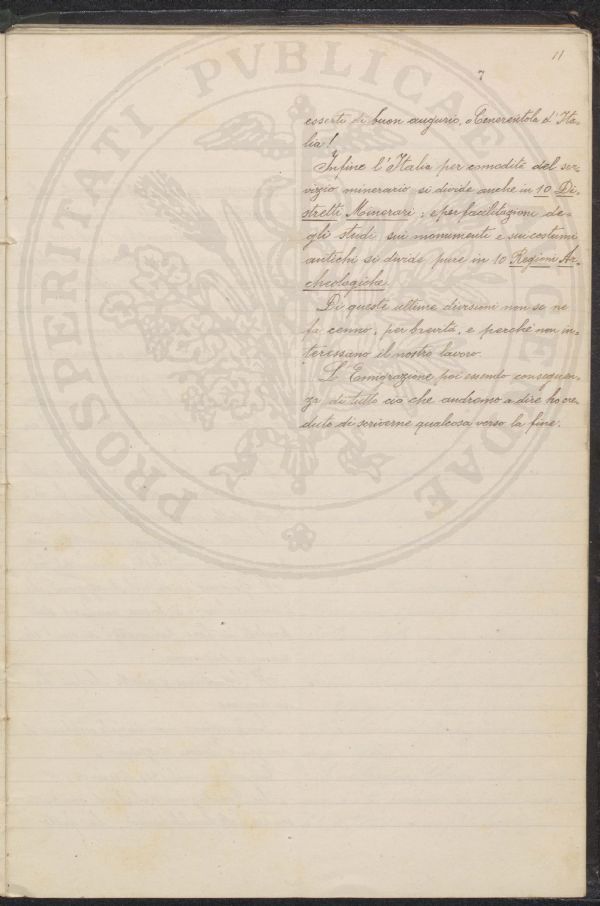 11
7
esserti di buon augurio, o Cenerentola d'Ita-
lia!
Infine l'Italia per comodità del ser-
vizio minerario si divide anche in 10 Di-
stretti Minerari; e per facilitazioni de-
gli studi sui monumenti e sui costumi
antichi si divide pure in 10 Regioni Ar-
cheologiche.
Di queste ultime divisioni non se ne
fa cenno, per brevità, e perché non in-
teressano il nostro lavoro.
L'Emigrazione poi essendo conseguen-
za di tutto ciò che andremo a dire ho cre-
duto di scriverne qualcosa verso la fine.
PROSPERITATI PVBLICAE AVGENDAE